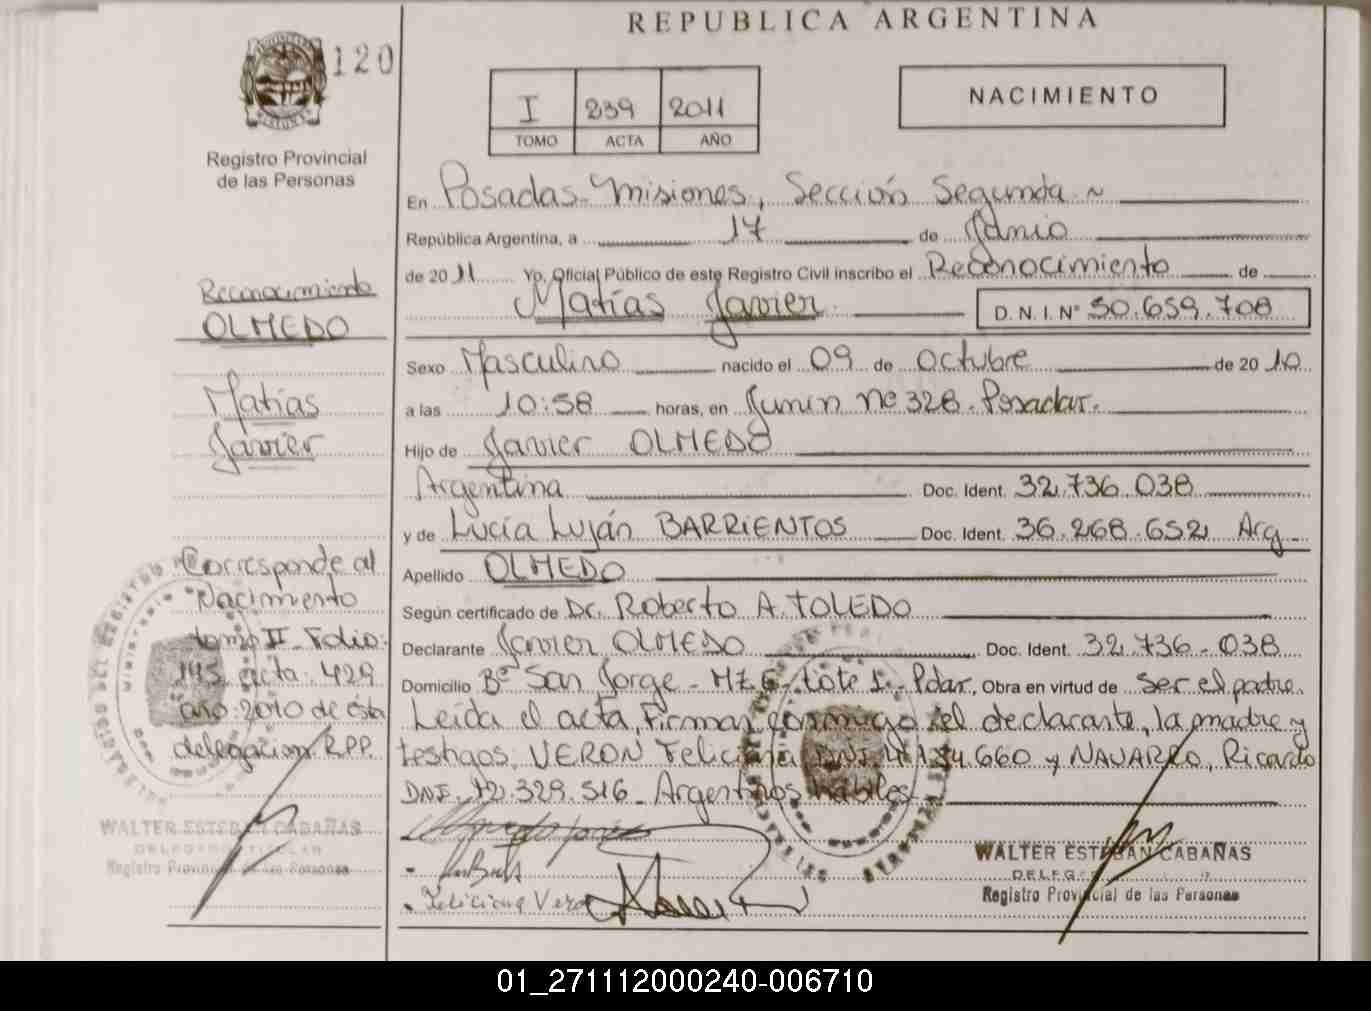 REPUBLICA ARGENTINA
120
I 239 2011
TOMO ACTA AÑO
NACIMIENTO
Registro Provincial
de las Personas
En Posadas-Misiones, Sección Segunda
República Argentina, a 17 de Junio
de 2011 Yo, Oficial Público de este Registro Civil inscribo el Reconocimiento de
Matías Javier D.N.I. Nº 50.659.708
Sexo Masculino nacido el 09 de Octubre de 2010
a las 10:58 horas, en Junin nº 328. Posadas.
Hijo de Javier OLMEDO
Argentina Doc. Ident. 32.736.038
y de Lucía Luján BARRIENTOS Doc. Ident. 36.268.652 Arg
Apellido OLMEDO
Según certificado de Dr. Roberto A. TOLEDO
Declarante Javier OLMEDO Doc. Ident. 32.736.038
Domicilio Bº San Jorge - MZ. 6 - Lote 1 - Pdas, Obra en virtud de Ser el padre.
Leída el acta, Firman conmigo el declarante, la madre y
testigos, VERON Feliciana DNI. 660 y NAVARRO, Ricardo
DNI. 12.329.516 - Argentinos hábiles
Feliciana Veron
WALTER ESTEBAN CABAÑAS
Registro Provincial de las Personas
Reconocimiento
OLMEDO
Matías
Javier
Corresponde al
Nacimiento
tomo II - Folio:
145 acta: 429
año: 2010 de ésta
delegacion R.P.P.
WALTER ESTEBAN CABAÑAS
DELEGADO TITULAR
Registro Provincial de las Personas
01_271112000240-006710